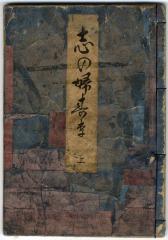 志の婦春草
上